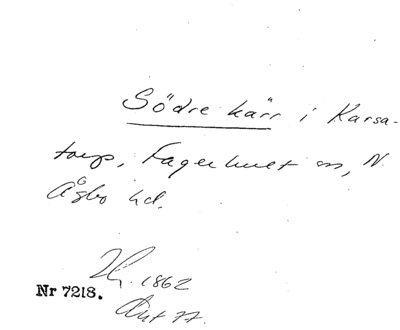 Södre kärr i Karsa-
torp, Fagerhult sn, N.
Åsbo hd.
1862
Nr 7218.